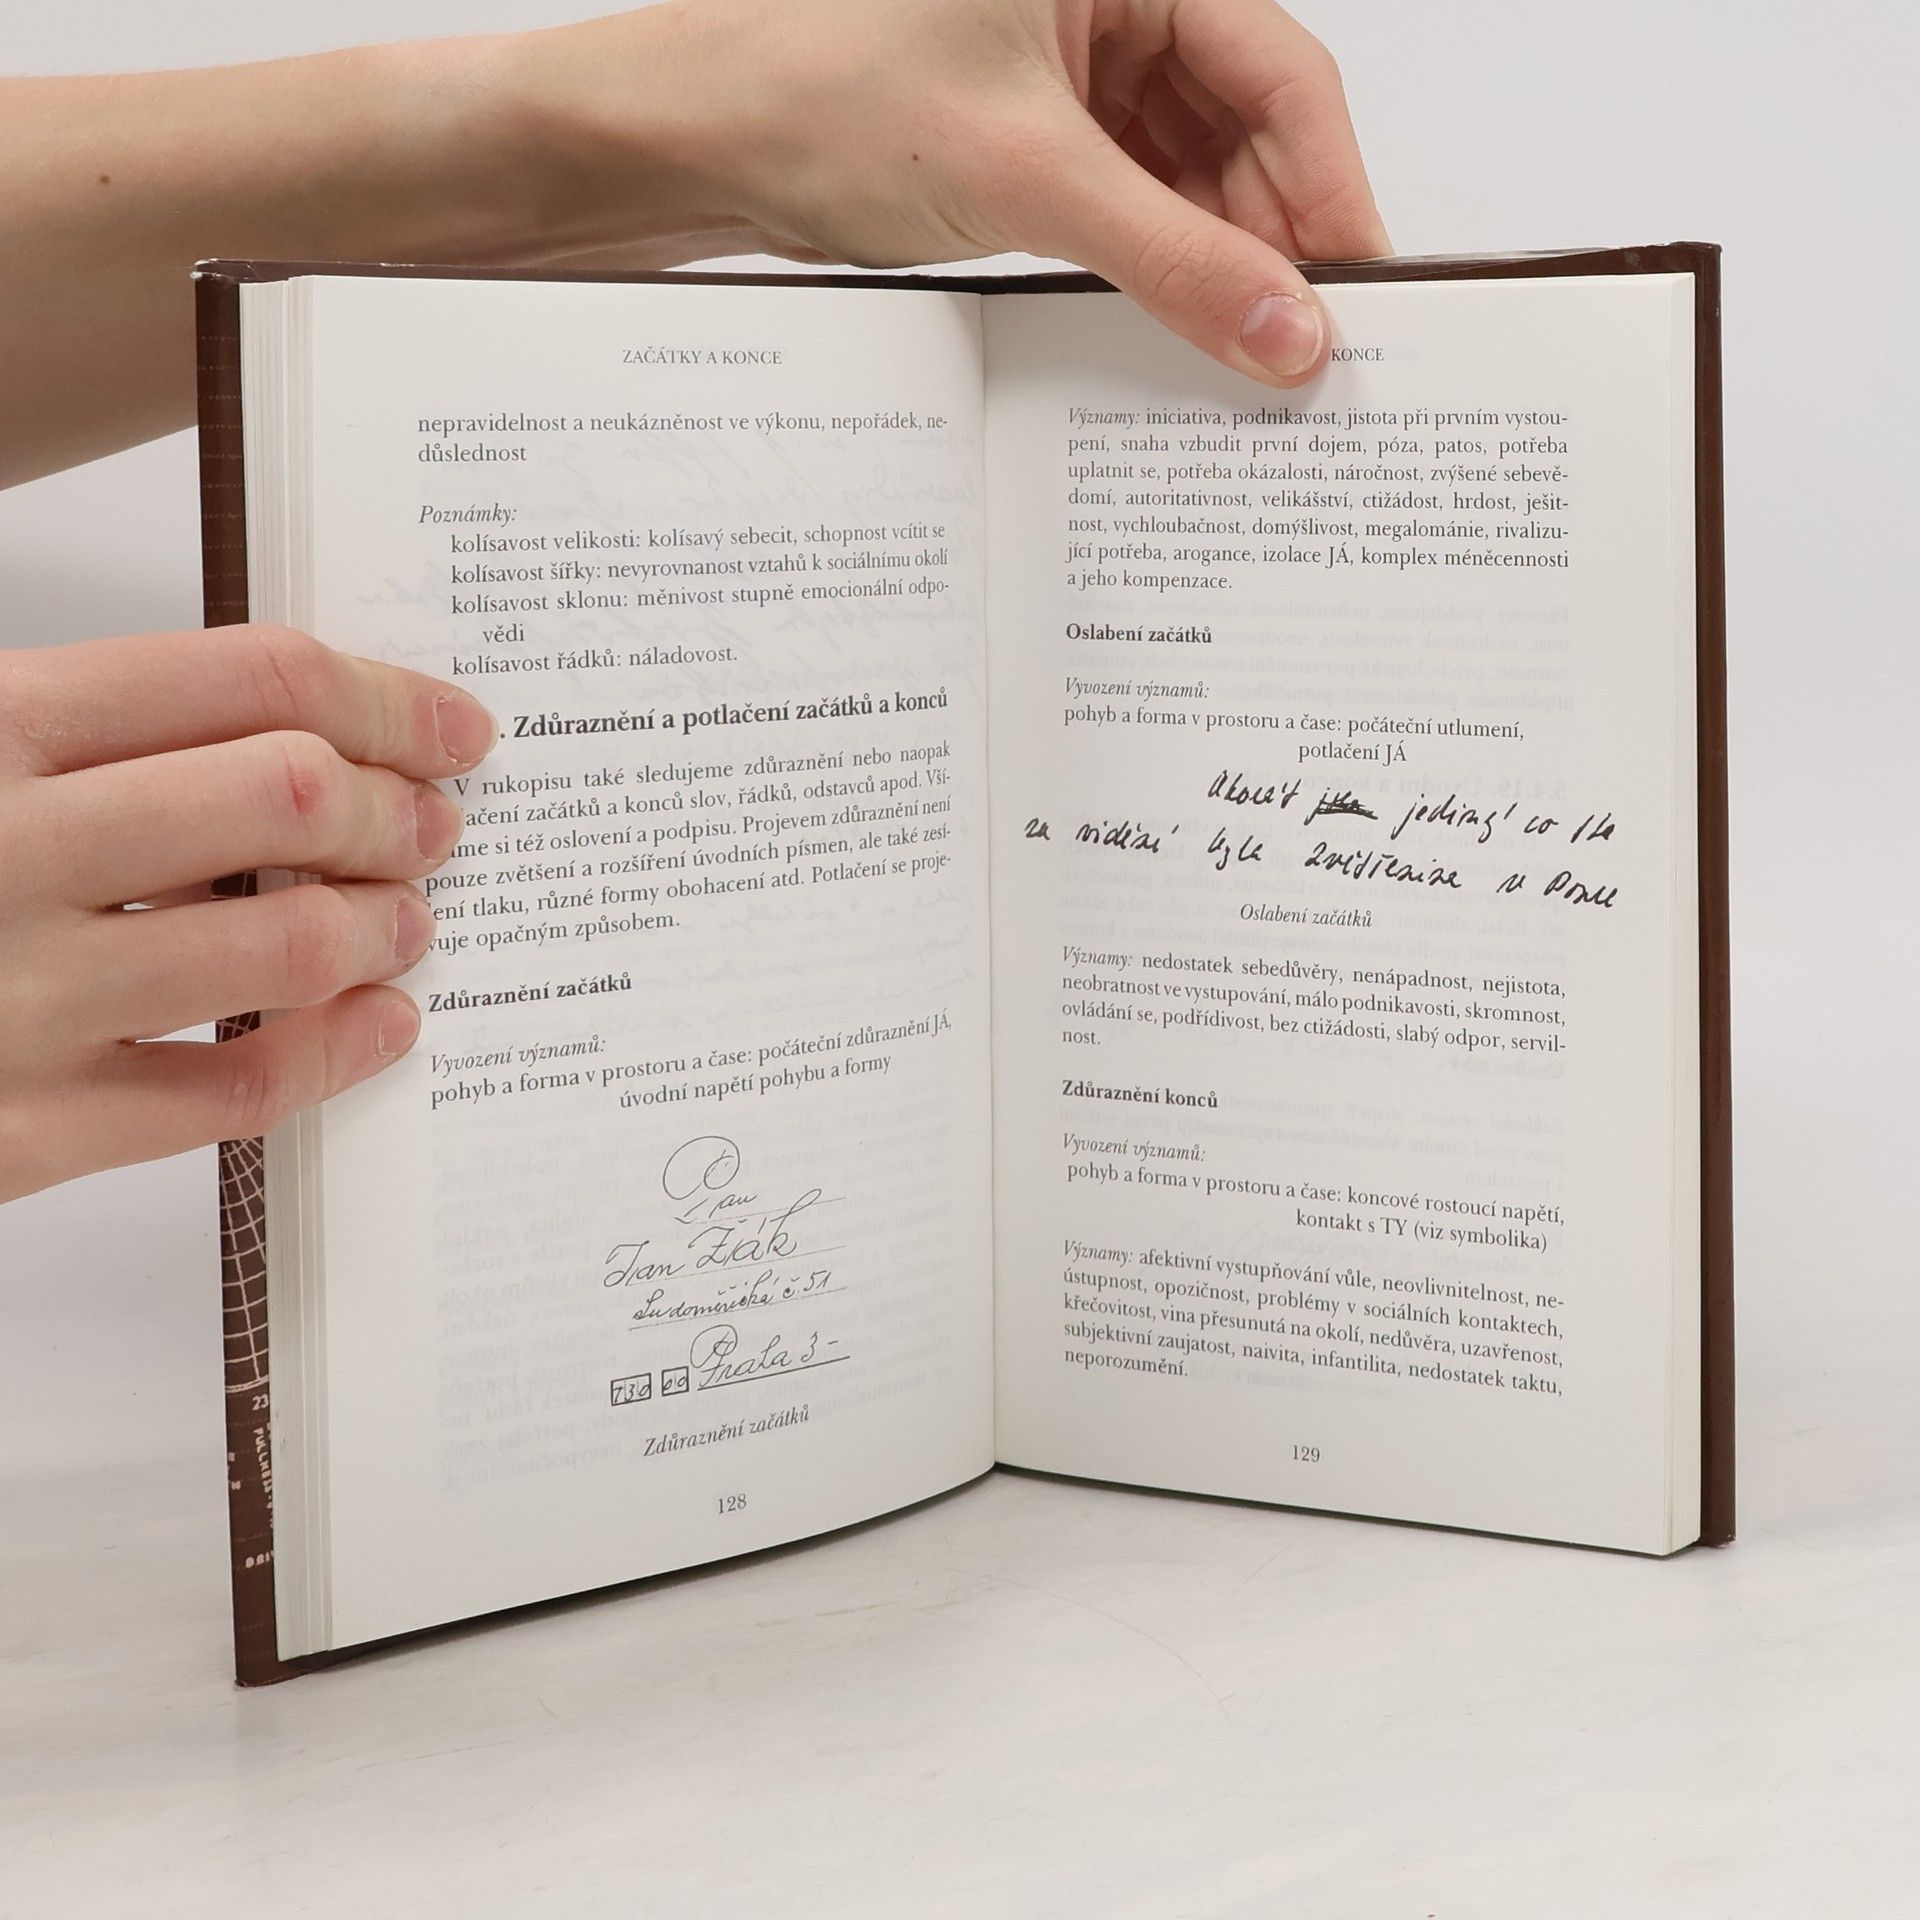 ZAČÁTKY A KONCE
nepravidelnost a neukázněnost ve výkonu, nepořádek, ne-
důslednost
Poznámky:
kolísavost velikosti: kolísavý sebecit, schopnost vcítit se
kolísavost šířky: nevyrovnanost vztahů k sociálnímu okolí
kolísavost sklonu: měnivost stupně emocionální odpo-
vědi
kolísavost řádků: náladovost.
. Zdůraznění a potlačení začátků a konců
V rukopisu také sledujeme zdůraznění nebo naopak
ačení začátků a konců slov, řádků, odstavců apod. Vší-
me si též oslovení a podpisu. Projevem zdůraznění není
pouze zvětšení a rozšíření úvodních písmen, ale také zesí-
ení tlaku, různé formy obohacení atd. Potlačení se proje-
vuje opačným způsobem.
Zdůraznění začátků
Vyvození významů:
pohyb a forma v prostoru a čase: počáteční zdůraznění JÁ,
úvodní napětí pohybu a formy
Pan
Jan Žák
Ludoměřická č. 51
730 00 Praha 3 -
Zdůraznění začátků
128
KONCE
Významy: iniciativa, podnikavost, jistota při prvním vystou-
pení, snaha vzbudit první dojem, póza, patos, potřeba
uplatnit se, potřeba okázalosti, náročnost, zvýšené sebevě-
domí, autoritativnost, velikášství, ctižádost, hrdost, ješit-
nost, vychloubačnost, domýšlivost, megalománie, rivalizu-
jící potřeba, arogance, izolace JÁ, komplex méněcennosti
a jeho kompenzace.
Oslabení začátků
Vyvození významů:
pohyb a forma v prostoru a čase: počáteční utlumení,
potlačení JÁ
Akorát jedinný co
za viděni byla v
Oslabení začátků
Významy: nedostatek sebedůvěry, nenápadnost, nejistota,
neobratnost ve vystupování, málo podnikavosti, skromnost,
ovládání se, podřídivost, bez ctižádosti, slabý odpor, servil-
nost.
Zdůraznění konců
Vyvození významů:
pohyb a forma v prostoru a čase: koncové rostoucí napětí,
kontakt s TY (viz symbolika)
Významy: afektivní vystupňování vůle, neovlivnitelnost, ne-
ústupnost, opozičnost, problémy v sociálních kontaktech,
křečovitost, vina přesunutá na okolí, nedůvěra, uzavřenost,
subjektivní zaujatost, naivita, infantilita, nedostatek taktu,
neporozumění.
129